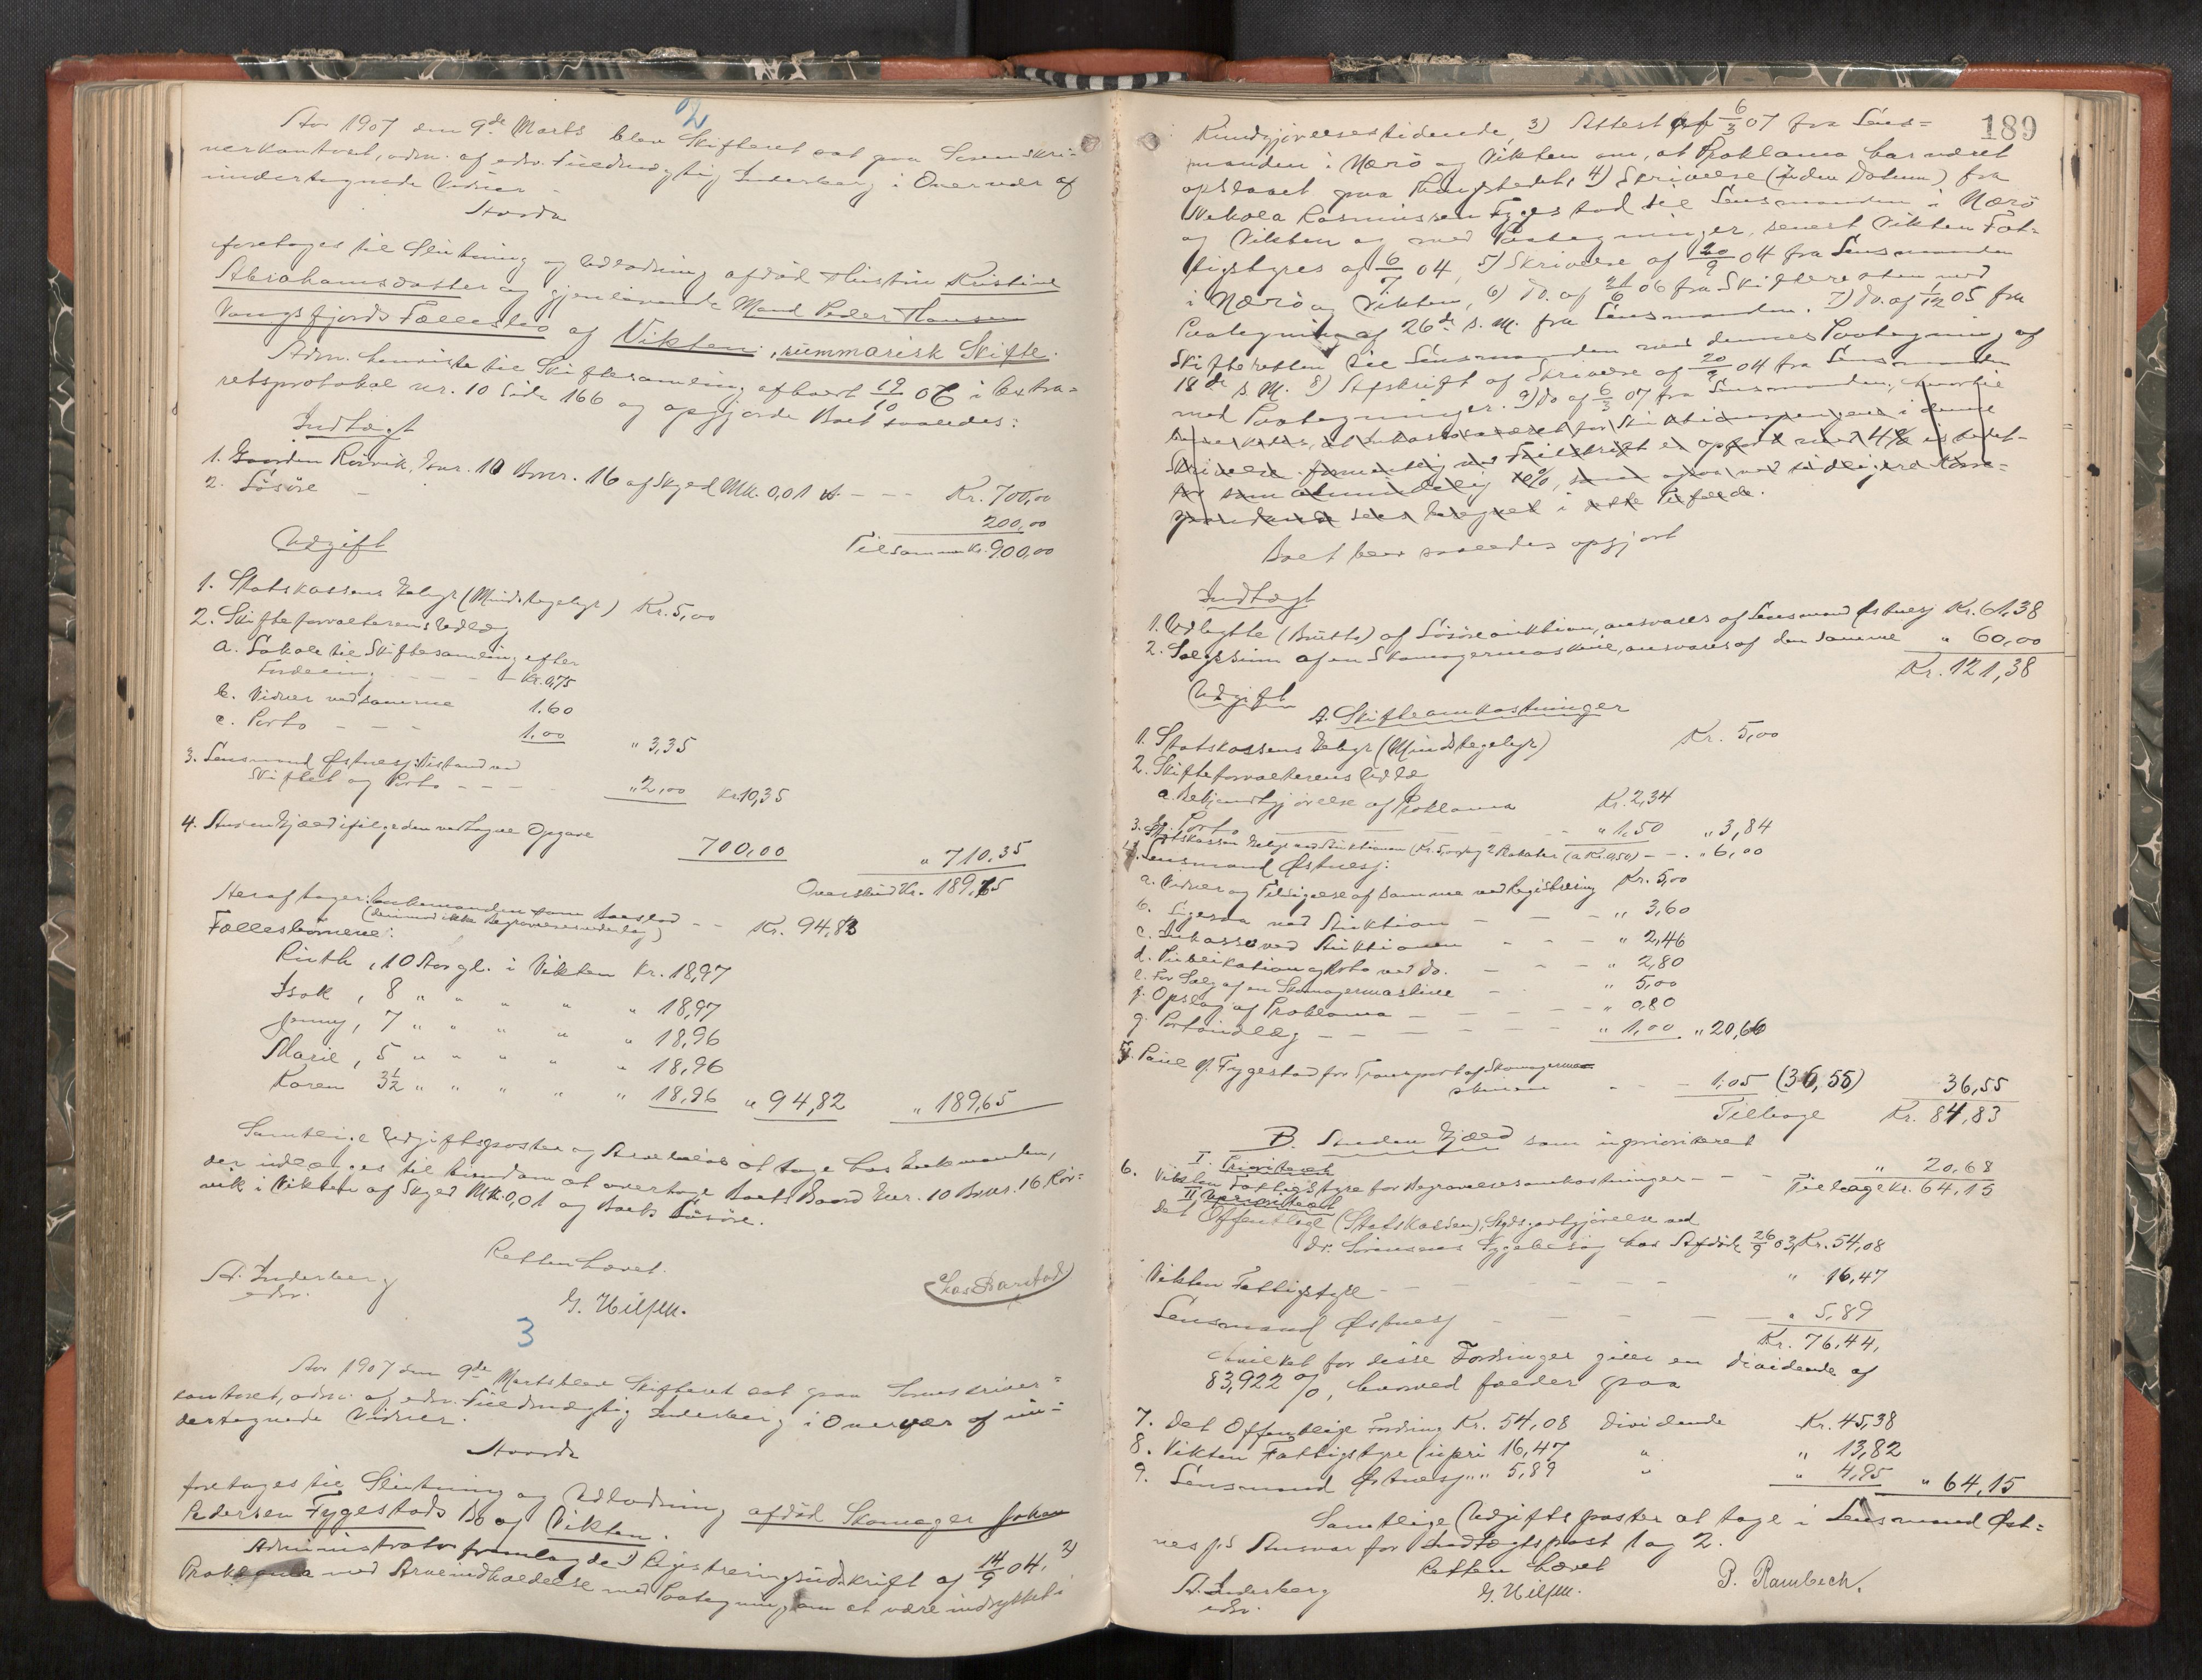 2
Aar 1907 den 9de Marts blev Skifteret sat paa Sorenskri-
verkontoret, adm. af edsv. Fuldmægtig Inderberg i Overvær af
undertegnede Vidner
Hvorda
foretoges til Slutning og Udlodning afdød Hustru Kristine
Abrahamsdatter og gjenlevende Mand Peder Hansen
Vangsfjords Fællesbo af Vikten, summarisk Skifte.
Adm. henviste til Skiftesamling afholdt 19/10 06 i Extra-
retsprotokol nr. 10 Side 166 og opgjorde Boet saaledes:
Indtægt
1. Gaarden Rørvik, Gnr. 10 Bnr. 16 af Skyld Mk. 0,01 - - - Kr. 700,00
2. Løsøre - 200,00
Tilsammen Kr. 900,00
Udgift
1. Statskassens Gebyr (Mindstegebyr) Kr. 5,00
2. Skifteforvalterens Udlæg
a. Lokale til Skiftesamling efter
Fordeling - - - - Kr. 0,75
b. Vidner ved samme 1.60
c. Porto - - - 1,00 " 3,35
3. Lensmand Østnesj: Bistand ved
Skiftet og Porto - - - - " 2,00 Kr. 10,35
4. Anden Gjæld ifølge den vedtagne Opgave 700,00 " 710,35
Overskud Kr. 189,65
Heraf tager: Enkemanden som Boeslod - - Kr. 94,83
(derimod ikke Begravelsesudlæg)
Fællesbørnene:
Ruth, 10 Aar gl. i Vikten Kr. 18,97
Isak, 8 " " " " " 18,97
Jenny, 7 " " " " " 18,96
Marie, 5 " " " " " 18,96
Karen 3 1/2 " " " " " 18,96 " 94,82 " 189,65
Samtlige Udgiftsposter og Arvelod at tage hos Enkemanden,
der udlægges til Eiendom at overtage Boets Gaard Gnr. 10 Bnr. 16 Rør-
vik i Vikten af Skyld Mk. 0,01 og Boets Løsøre.
Retten hævet.
A. Inderberg
edsv.
G. Nilsen.
3
Aar 1907 den 9de Marts blev Skifteret sat paa Sorenskriver-
kontoret, adm. af edsv. Fuldmægtig Inderberg i Overvær af un-
dertegnede Vidner.
Hvorda
foretoges til Slutning og Udlodning afdød Skomager Johan
Pedersen Fygestads Bo af Vikten.
Administrator fremlagde 1) Registreringsudskrift af 14/9 04. 2)
Proklama med Arveindkaldelse med Paategning om at være indrykket i
189
Kundgjørelsestidende, 3) Attest af 6/3 07 fra Lens-
manden i Nærø og Vikten om, at Proklama har været
opslaaet paa Thingstedet, 4) Skrivelse (uden Datum) fra
Nikola Rasmussen Fygestad til Lensmanden i Nærø
og Vikten og med Paategninger, senest Vikten Fat-
tigstyres af 6/7 04, 5) Skrivelse af 20/9 04 fra Lensmanden
i Nærø og Vikten, 6) Do. af 21/6 06 fra Skifteretten med
Paategning af 26de s. M. fra Lensmanden. 7) Do. af 1/12 05 fra
Skifteretten til Lensmanden med dennes Paategning af
18de s. M. 8) Afskrift af Skrivelse af 20/9 04 fra Lensmanden
med Paategninger. 9) Do af 6/3 07 fra Lensmanden, hvortil
Boet blev saaledes opgjort
Indtægt
1. Udbytte (Brutto) af Løsøreauktion, ansvares af Lensmand Østnesj Kr. 61,38
2. Salgssum af en Skomagermaskine, ansvares af den samme " 60,00
Kr. 121,38
Udgift
A. Skifteomkostninger
1. Statskassens Gebyr (Mindstegebyr) Kr. 5,00
2. Skifteforvalterens Udlæg
a. Bekjendtgjørelse af Proklama Kr. 2,34
b. Porto - - - " 1.50 " 3,84
3. Statskassen Gebyr ved Auktionen (Kr. 5,00 og 2 Plakater (a Kr. 0,50) - - " 6,00
4. Lensmand Østnesj:
a. Vidner og Tilsigelse af samme ved Registrering Kr. 5,00
b. Ligesaa ved Auktion - - - " 3,60
c. Inkasso ved Auktionen - - - " 2,46
d. Publikation og Porto ved do. - - - " 2,80
e. For Salg af en Skomagermaskine - " 5,00
f. Opslag af Proklama - - - - " 0,80
g. Portoudlæg - - - - - " 1,00 " 20,66
5. Paul P. Fygestad for Transport af Skomagerma-
skinen - - - 1.05 (36,55) 36,55
Tilbage Kr. 84,83
B. Anden Gjæld som uprioriteret
I Prioriteret
6. Vikten Fattigstyre for Begravelsesomkostninger - - - " 20,68
Tilbage Kr. 64,15
II Uprioriteret
Det Offentlige (Statskassen), Skydsgodtgjørelse ved
Dr. Sørensens Sygebesøg hos Afdøde 26/9 03, Kr. 54,08
Vikten Fattigstyre - - - - - " 16,47
Lensmand Østnesj - - - - " 5,89
Kr. 76,44,
hvilket for disse Fordringer giver en Dividende af
83,922 %, hvorved falder paa
7. Det Offentlige Fordring Kr. 54,08 Dividende Kr. 45,38
8. Vikten Fattigstyre (upri 16,47 " " 13,82
9. Lensmand Østnesj " " 5,89 " " 4,95 " 64,15
Samtlige Udgiftsposter at tage i Lensmand Øst-
nesj's Ansvar for Indtægtspost 1 og 2.
Retten hævet
A. Inderberg
edsv.
G. Nilsen.
P. Rambech.